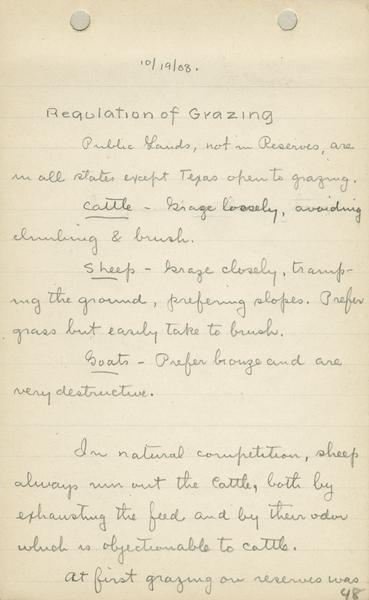 10/19/08.
Regulation of Grazing
Public Lands, not in Reserves, are
in all states except Texas open to grazing.
Cattle - Graze loosely, avoiding
climbing & brush.
Sheep - Graze closely, tramp-
ing the ground, prefering slopes. Prefer
grass but easily take to brush.
Goats - Prefer browze and are
very destructive.
In natural competition, sheep
always run out the Cattle, both by
exhausting the feed and by their odor
which is objectionable to cattle.
At first grazing on reserves was
48